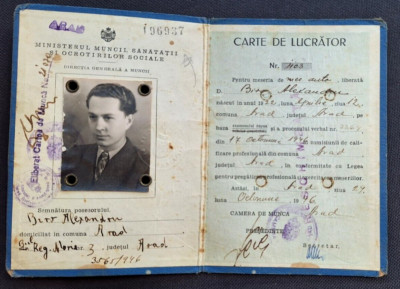 ARAD
196937
MINISTERUL MUNCII, SĂNĂTĂȚII
ȘI OCROTIRILOR SOCIALE
DIRECȚIA GENERALĂ A MUNCII
Semnătura posesorului.
Biro Alexandru
domiciliat în comuna Arad
Reg. Maria No. 3 județul Arad
CARTE DE LUCRĂTOR
Nr.
Pentru meseria de auto, liberată
D. Biro Alexandru
născut în anul 1922 luna Aprilie ziua
comuna Arad, județul Arad, pe
baza și a procesului verbal nr.
din 14 Octomvrie 1946 al comisiunii de calificare
profesională din comuna Arad
Arad, în conformitate cu Legea
pentru pregătirea profesională și exercitarea meseriilor.
Astăzi, ziua 29
luna Octomvrie 1946
CAMERA DE MUNCĂ Arad
PREȘEDINTE,
Secretar,